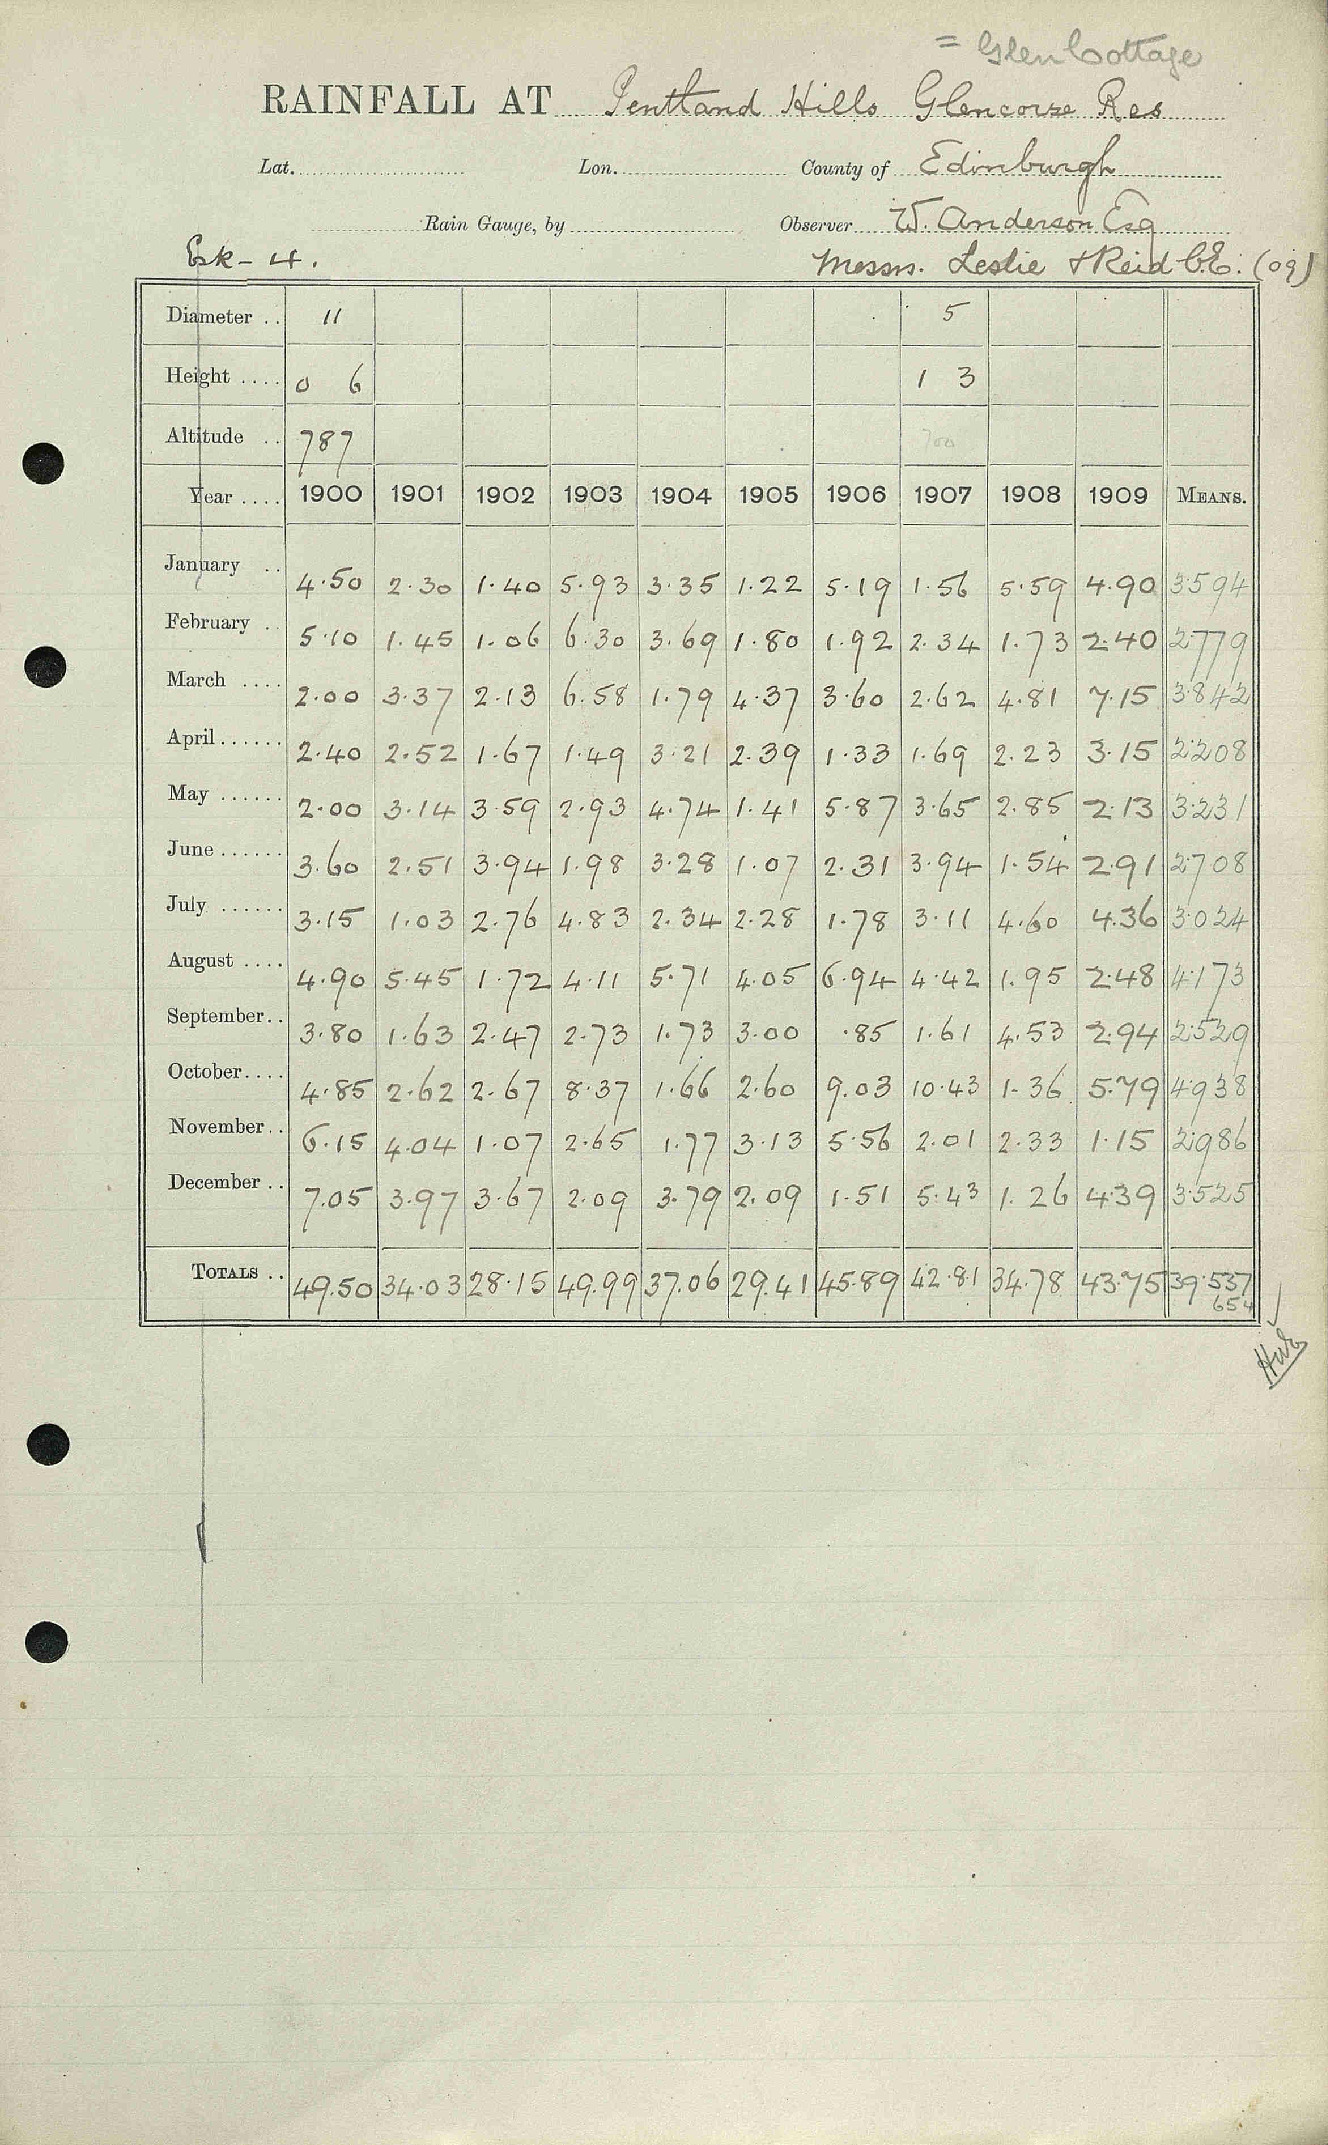 = Glen Cottage
RAINFALL AT Pentland Hills Glencorse Res
Lat. Lon. County of Edinburgh
Rain Gauge, by Observer W. Anderson Esq
Esk - 4. Messrs. Leslie & Reid C.E. (09)
Diameter .. 11 5
Height .... 0 6 1 3
Altitude .. 787 700
Year .... 1900 1901 1902 1903 1904 1905 1906 1907 1908 1909 MEANS.
January .. 4.50 2.30 1.40 5.93 3.35 1.22 5.19 1.56 5.59 4.90 3.594
February .. 5.10 1.45 1.06 6.30 3.69 1.80 1.92 2.34 1.73 2.40 2.779
March .... 2.00 3.37 2.13 6.58 1.79 4.37 3.60 2.62 4.81 7.15 3.842
April ...... 2.40 2.52 1.67 1.49 3.21 2.39 1.33 1.69 2.23 3.15 2.208
May ...... 2.00 3.14 3.59 2.93 4.74 1.41 5.87 3.65 2.85 2.13 3.231
June ...... 3.60 2.51 3.94 1.98 3.28 1.07 2.31 3.94 1.54 2.91 2.708
July ...... 3.15 1.03 2.76 4.83 2.34 2.28 1.78 3.11 4.60 4.36 3.024
August .... 4.90 5.45 1.72 4.11 5.71 4.05 6.94 4.42 1.95 2.48 4.173
September .. 3.80 1.63 2.47 2.73 1.73 3.00 .85 1.61 4.53 2.94 2.529
October .... 4.85 2.62 2.67 8.37 1.66 2.60 9.03 10.43 1.36 5.79 4.938
November .. 6.15 4.04 1.07 2.65 1.77 3.13 5.56 2.01 2.33 1.15 2.986
December .. 7.05 3.97 3.67 2.09 3.79 2.09 1.51 5.43 1.26 4.39 3.525
TOTALS .. 49.50 34.03 28.15 49.99 37.06 29.41 45.89 42.81 34.78 43.75 39.537
654